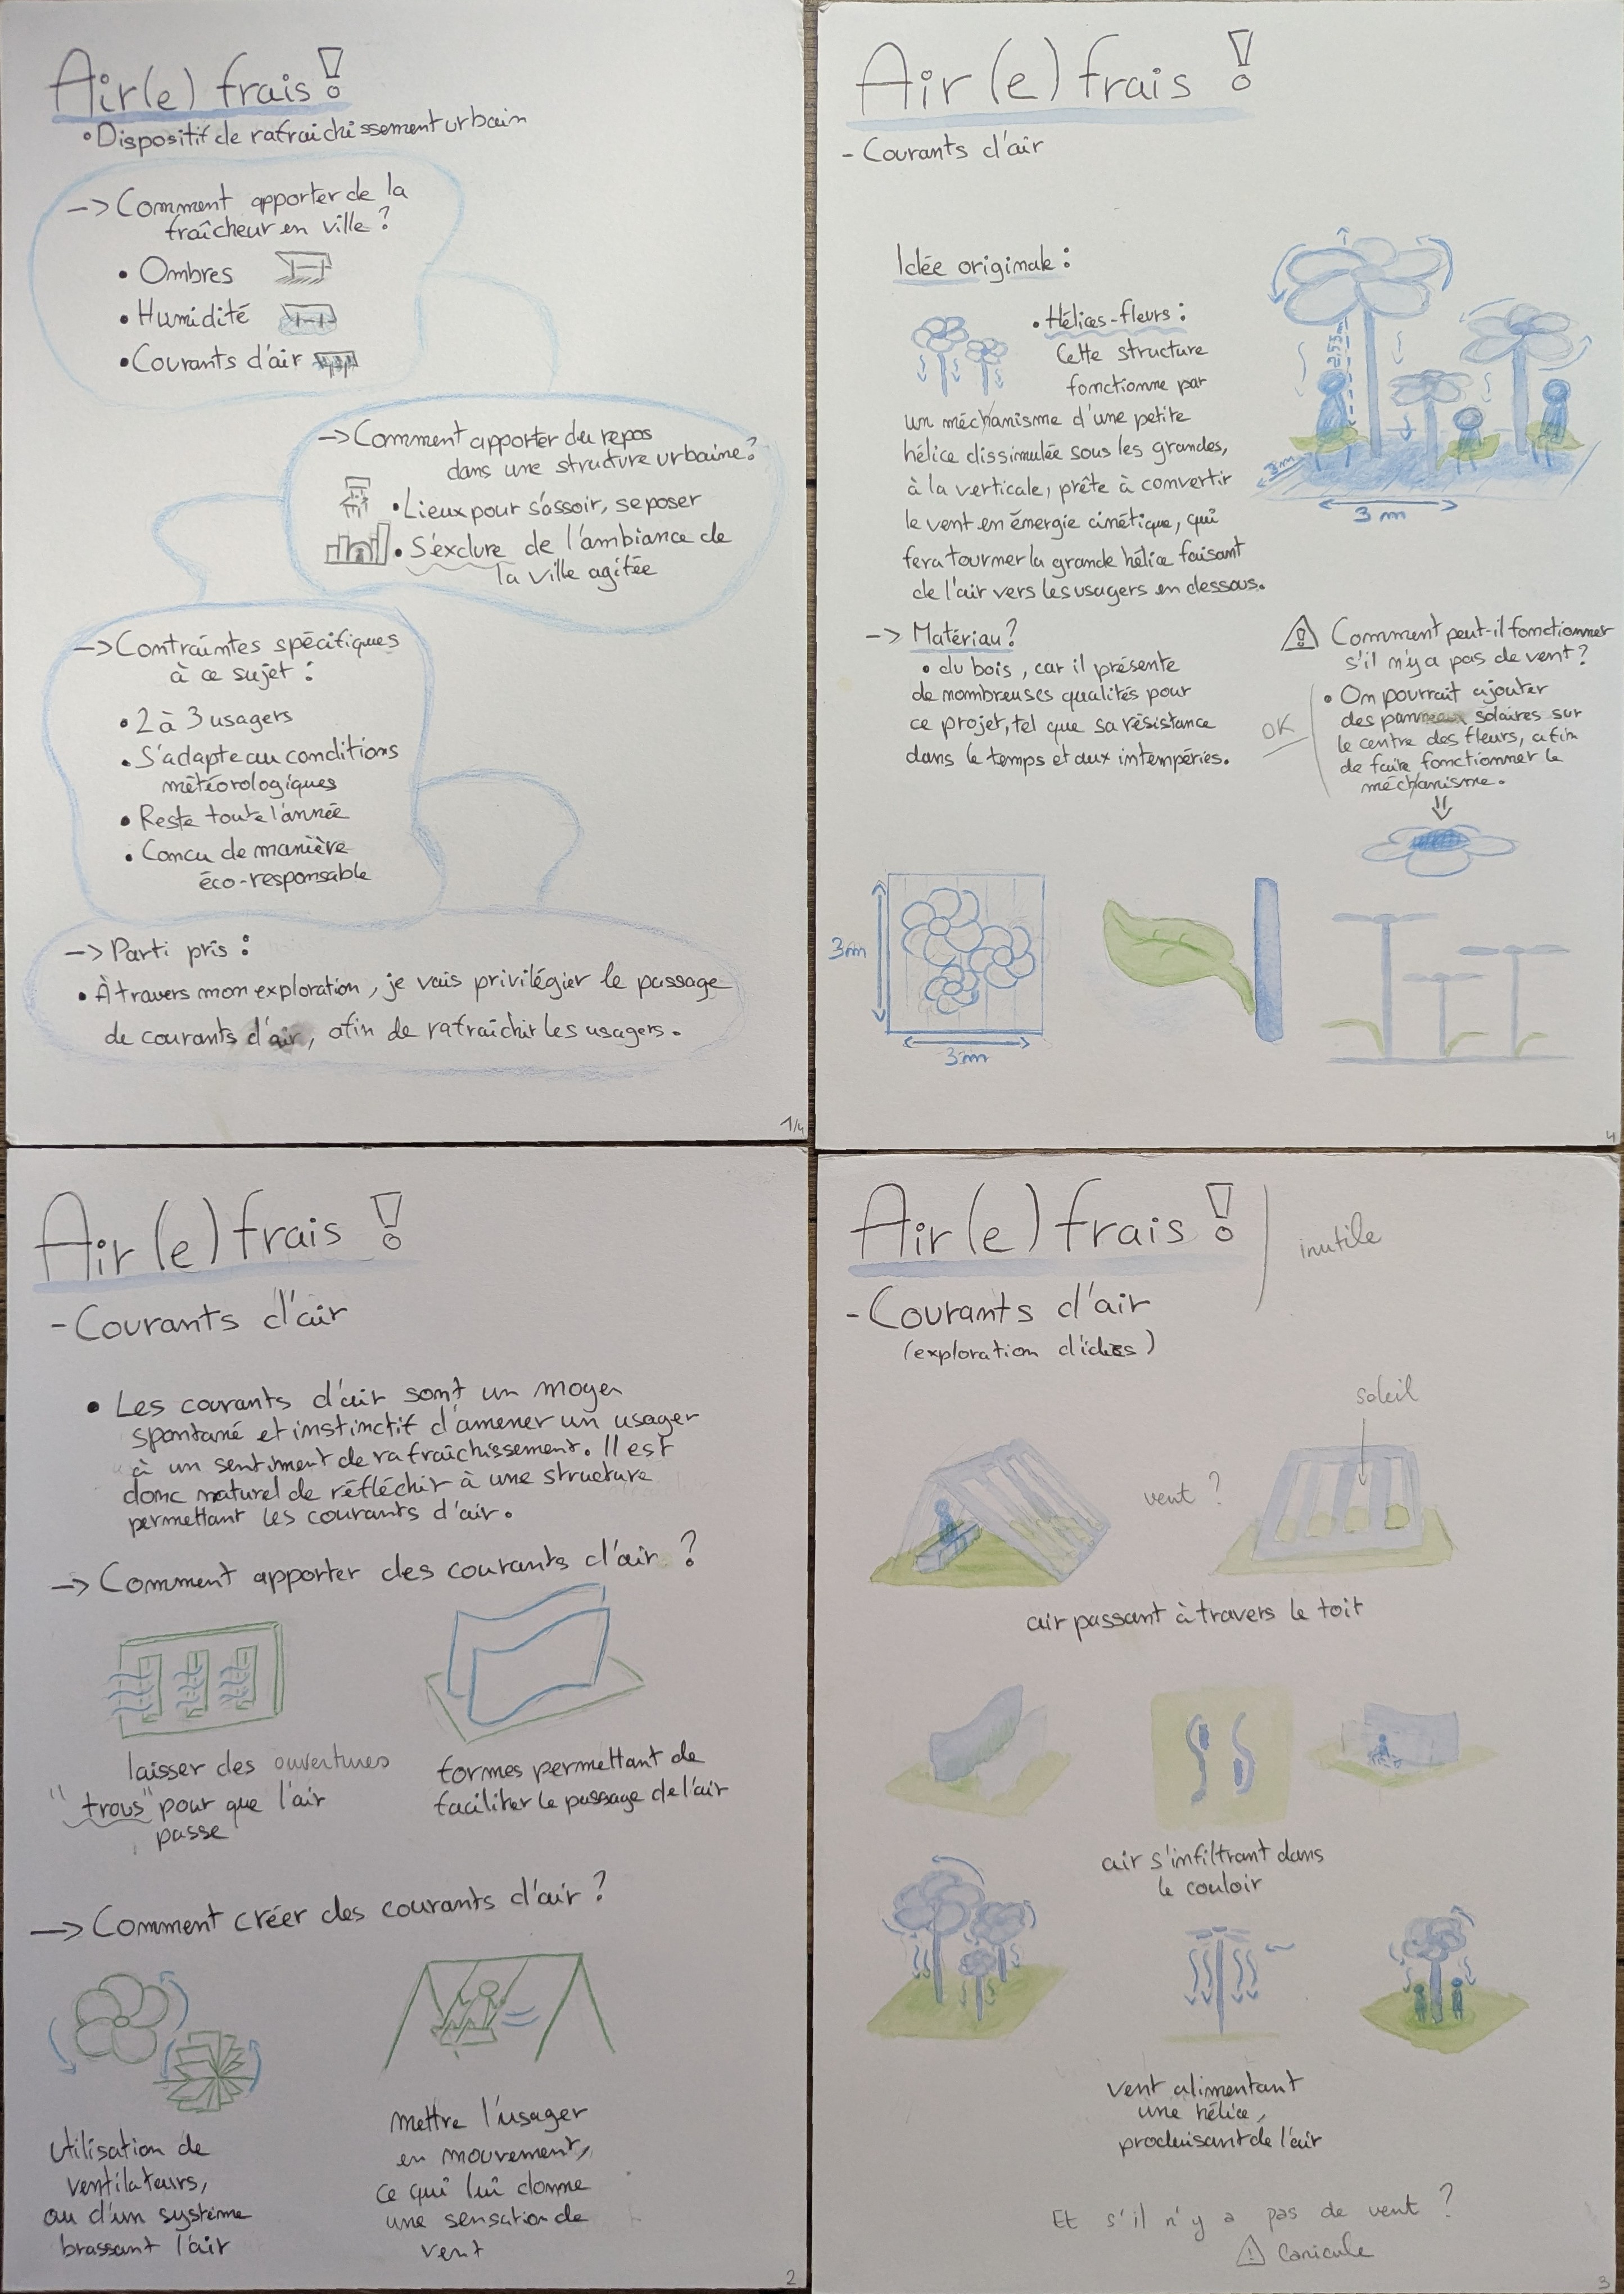 Air(e) frais !
• Dispositif de rafraichissement urbain
-> Comment apporter de la
fraîcheur en ville ?
• Ombres
• Humidité
• Courants d'air
-> Comment apporter du repos
dans une structure urbaine ?
• Lieux pour s'assoir, se poser
• S'exclure de l'ambiance de
la ville agitée
-> Contraintes spécifiques
à ce sujet :
• 2 à 3 usagers
• S'adapte au conditions
météorologiques
• Reste toute l'année
• Concu de manière
éco-responsable
-> Parti pris :
• À travers mon exploration, je vais privilégier le passage
de courants d'air, afin de rafraîchir les usagers.
1/4
Air(e) frais !
- Courants d'air
• Les courants d'air sont un moyen
spontané et instinctif d'amener un usager
à un sentiment de rafraîchissement. Il est
donc naturel de réfléchir à une structure
permettant les courants d'air.
-> Comment apporter des courants d'air ?
laisser des ouvertures
"trous" pour que l'air
passe
formes permettant de
faciliter le passage de l'air
-> Comment créer des courants d'air ?
Utilisation de
ventilateurs,
ou d'un système
brassant l'air
mettre l'usager
en mouvement,
ce qui lui donne
une sensation de
vent
2
Air(e) frais !
inutile
- Courants d'air
(exploration d'idées)
soleil
vent ?
air passant à travers le toit
air s'infiltrant dans
le couloir
vent alimentant
une hélice,
produisant de l'air
Et s'il n'y a pas de vent ?
⚠ Canicule
3
Air(e) frais !
- Courants d'air
Idée originale :
• Hélices-fleurs :
Cette structure
fonctionne par
un méchanisme d'une petite
hélice dissimulée sous les grandes,
à la verticale, prête à convertir
le vent en énergie cinétique, qui
fera tourner la grande hélice faisant
de l'air vers les usagers en dessous.
3m
3 m
-> Matériau ?
• du bois, car il présente
de nombreuses qualités pour
ce projet, tel que sa résistance
dans le temps et aux intempéries.
⚠ Comment peut-il fonctionner
s'il n'y a pas de vent ?
OK
• On pourrait ajouter
des panneaux solaires sur
le centre des fleurs, afin
de faire fonctionner le
méchanisme.
3m
3m
4